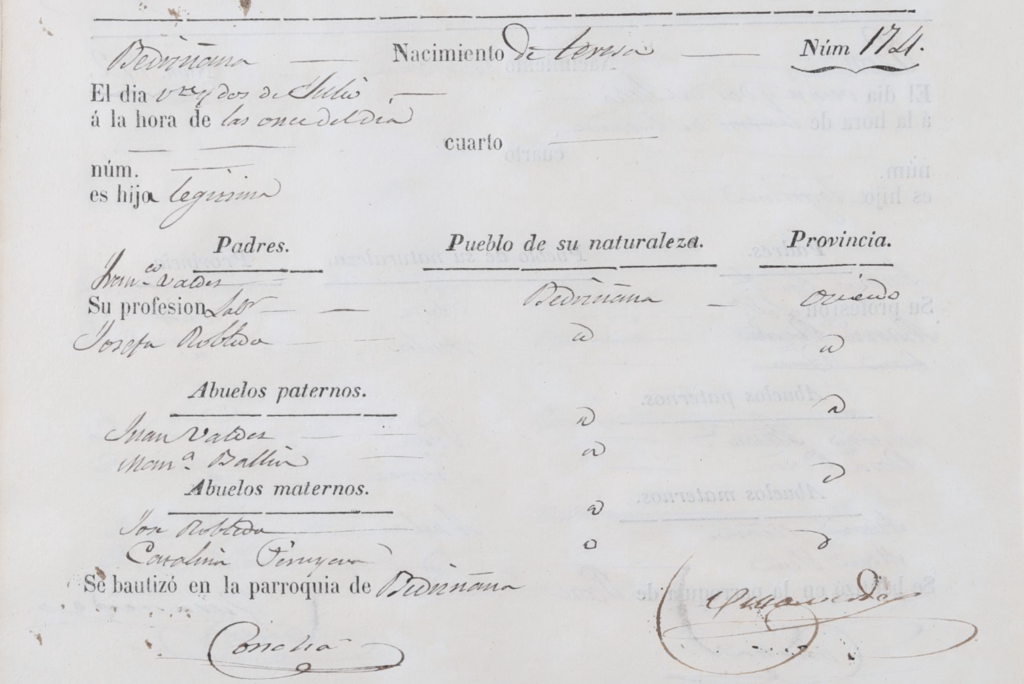 Bedriñana Nacimiento de teresa Núm 174.
El dia vte y dos de Julio
á la hora de las once del dia
cuarto
núm.
es hija legitima
Padres. Pueblo de su naturaleza. Provincia.
Franco Valdes
Su profesion Labr Bedriñana oviedo
Josefa Robledo
Abuelos paternos.
Juan Valdes
Ballin
Abuelos maternos.
Jose Robledo
Carolina
Se bautizó en la parroquia de Bedriñana